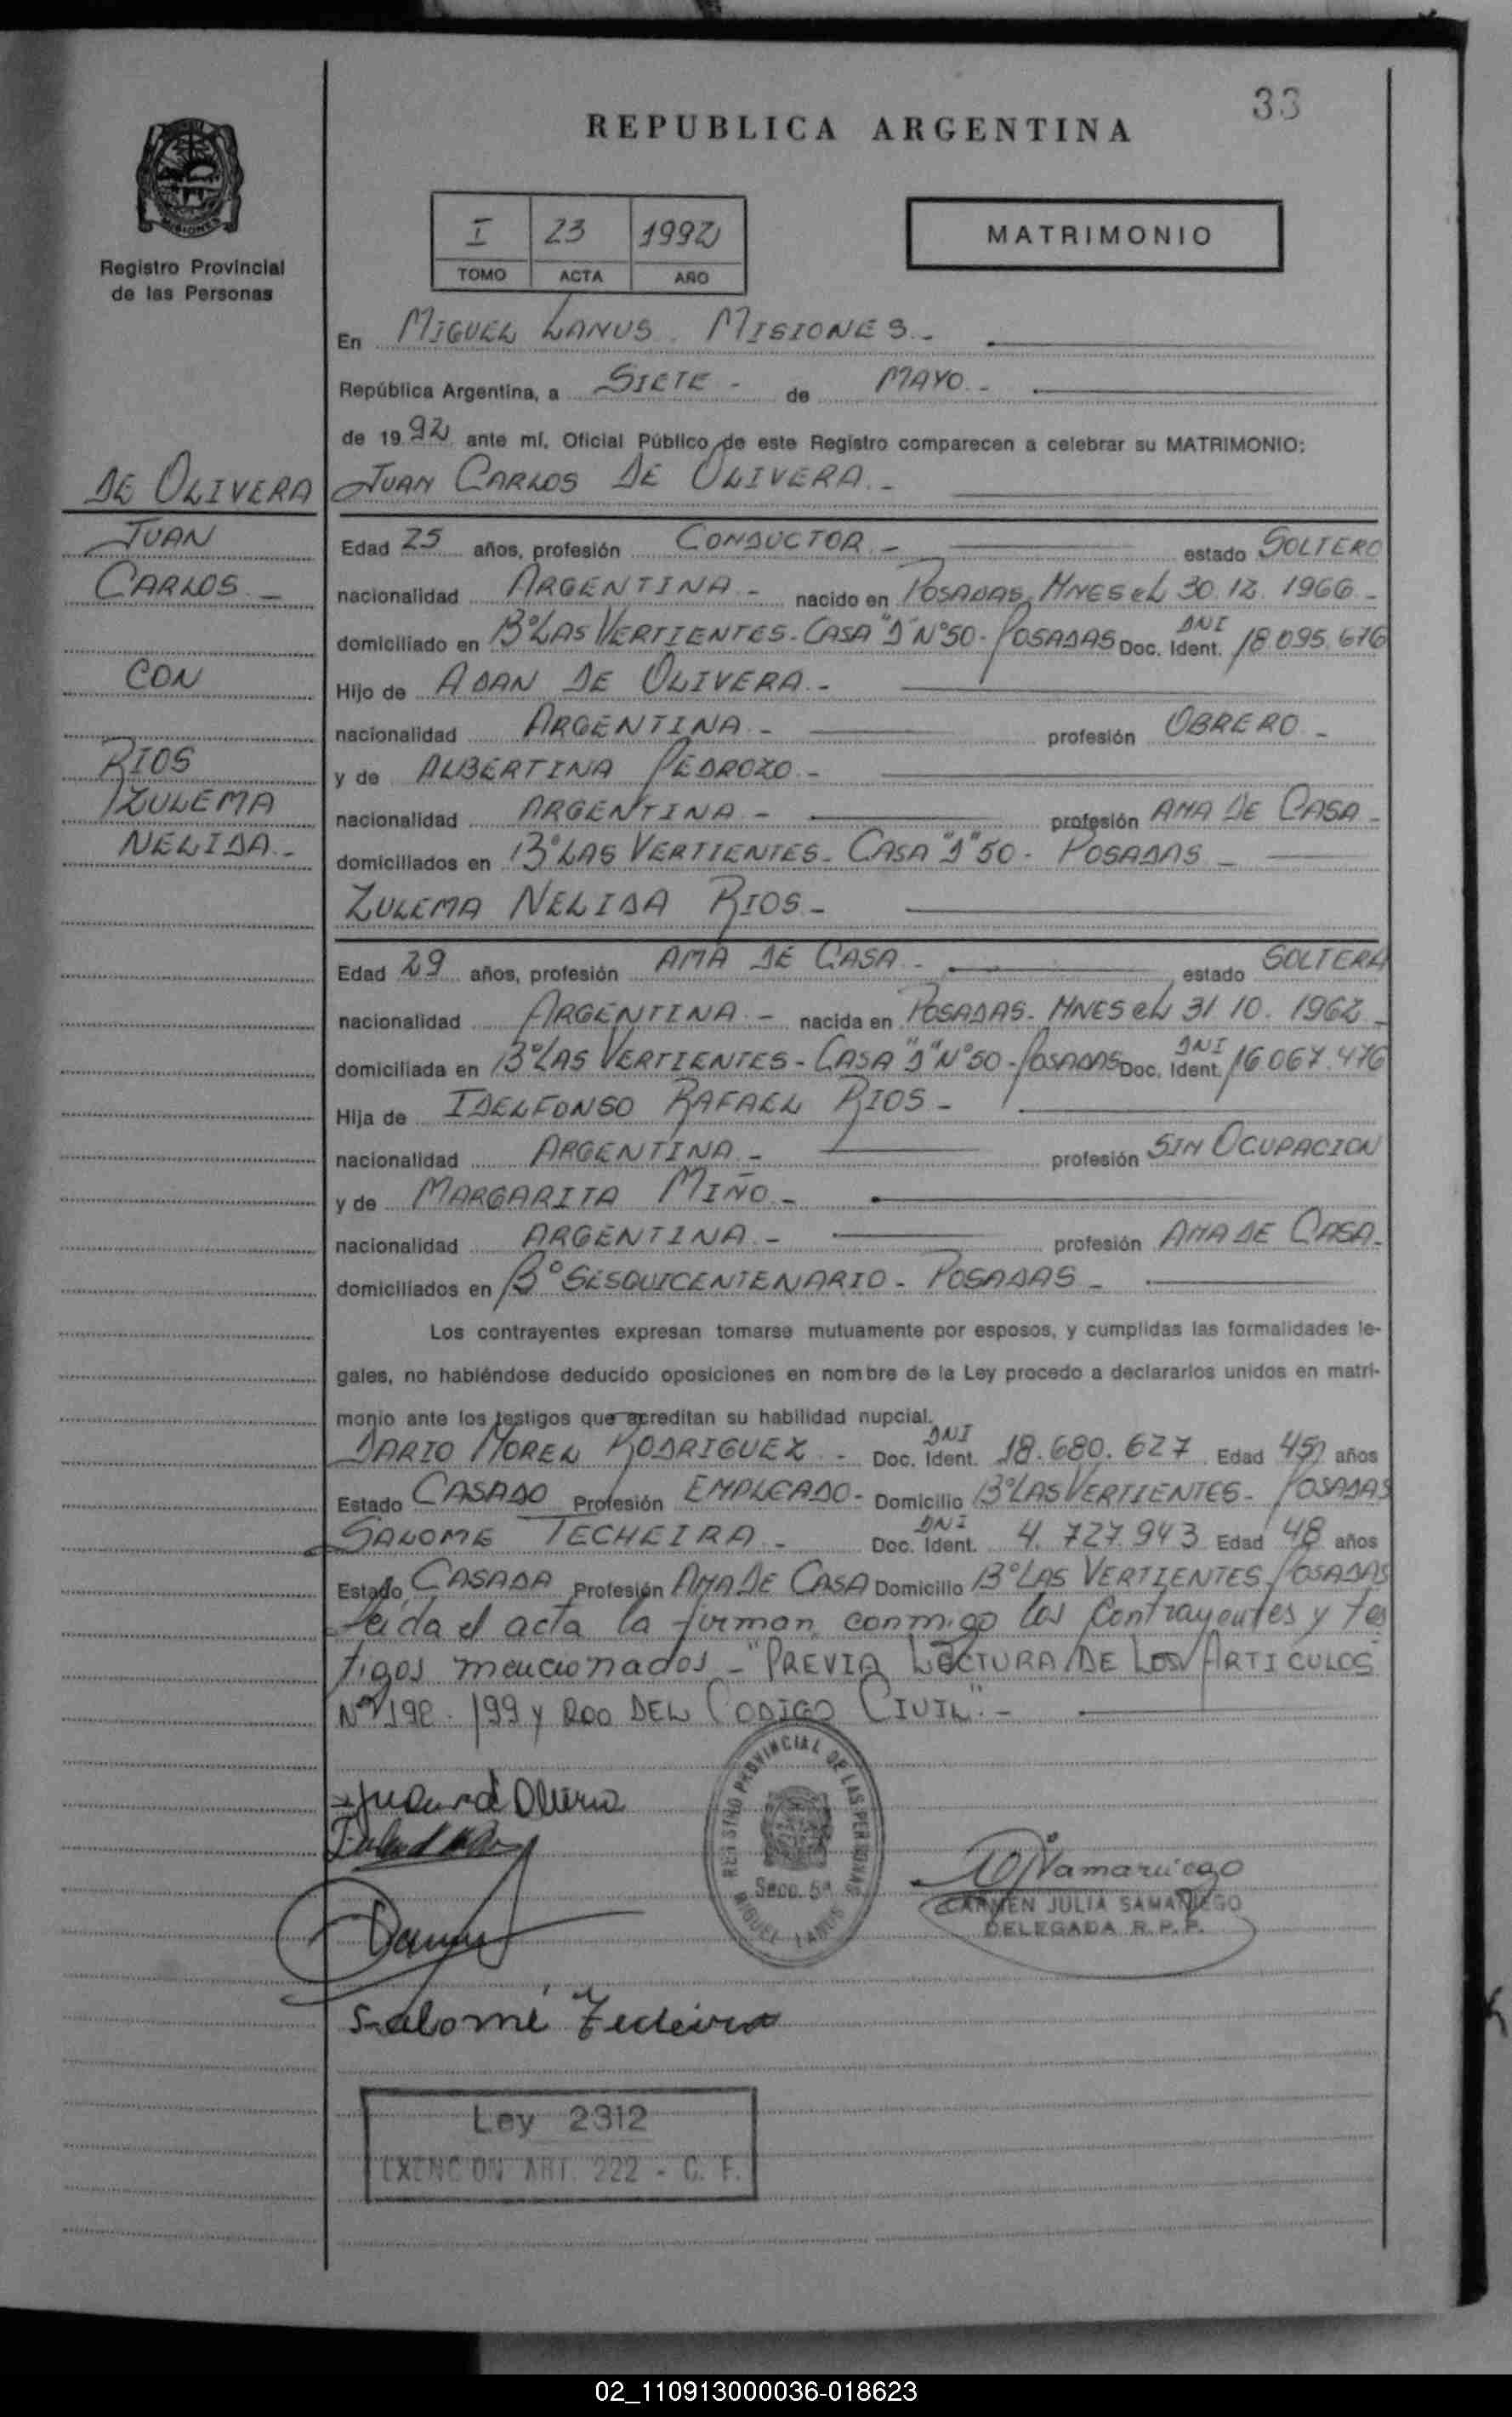 33
REPUBLICA ARGENTINA
MISIONES
Registro Provincial
de las Personas
I 23 1992
TOMO ACTA AÑO
MATRIMONIO
En MIGUEL LANUS. MISIONES.-
República Argentina, a SIETE - de MAYO.-
de 1992 ante mí, Oficial Público de este Registro comparecen a celebrar su MATRIMONIO:
DE OLIVERA
JUAN
CARLOS.-
CON
RIOS
ZULEMA
NELIDA.-
JUAN CARLOS DE OLIVERA.-
Edad 25 años, profesión CONDUCTOR.- estado SOLTERO
nacionalidad ARGENTINA.- nacido en POSADAS, MNES el 30.12.1966.-
domiciliado en B° LAS VERTIENTES - CASA "D" N° 50 - POSADAS Doc. Ident. DNI 18.095.676
Hijo de ADAN DE OLIVERA.-
nacionalidad ARGENTINA.- profesión OBRERO.-
y de ALBERTINA PEDROZO.-
nacionalidad ARGENTINA.- profesión AMA DE CASA.-
domiciliados en B° LAS VERTIENTES - CASA "D" 50 - POSADAS -
ZULEMA NELIDA RIOS.-
Edad 29 años, profesión AMA DE CASA.- estado SOLTERA
nacionalidad ARGENTINA.- nacida en POSADAS. MNES el 31.10.1962.-
domiciliada en B° LAS VERTIENTES - CASA "D" N° 50 - POSADAS Doc. Ident. DNI 16.067.476
Hija de IDELFONSO RAFAEL RIOS -
nacionalidad ARGENTINA.- profesión SIN OCUPACION
y de MARGARITA MIÑO.-
nacionalidad ARGENTINA.- profesión AMA DE CASA.-
domiciliados en B° SESQUICENTENARIO - POSADAS -
Los contrayentes expresan tomarse mutuamente por esposos, y cumplidas las formalidades le-
gales, no habiéndose deducido oposiciones en nombre de la Ley procedo a declararlos unidos en matri-
monio ante los testigos que acreditan su habilidad nupcial.
DARIO MOREL RODRIGUEZ.- Doc. Ident. DNI 18.680.627 Edad 45 años
Estado CASADO Profesión EMPLEADO- Domicilio B° LAS VERTIENTES - POSADAS
SALOME TECHEIRA.- Doc. Ident. DNI 4.727.943 Edad 48 años
Estado CASADA Profesión AMA DE CASA Domicilio B° LAS VERTIENTES POSADAS
Leida el acta la firman conmigo los Contrayentes y tes
tigos mencionados - "PREVIA LECTURA DE LOS ARTICULOS
N° 198. 199 y 200 DEL CODIGO CIVIL".-
REGISTRO PROVINCIAL DE LAS PERSONAS
Secc. 5ª
MIGUEL LANUS
CARMEN JULIA SAMANIEGO
DELEGADA R.P.P.
Salomé Techeira
Ley 2312
EXENCION ART. 222 - C. F.
02_110913000036-018623